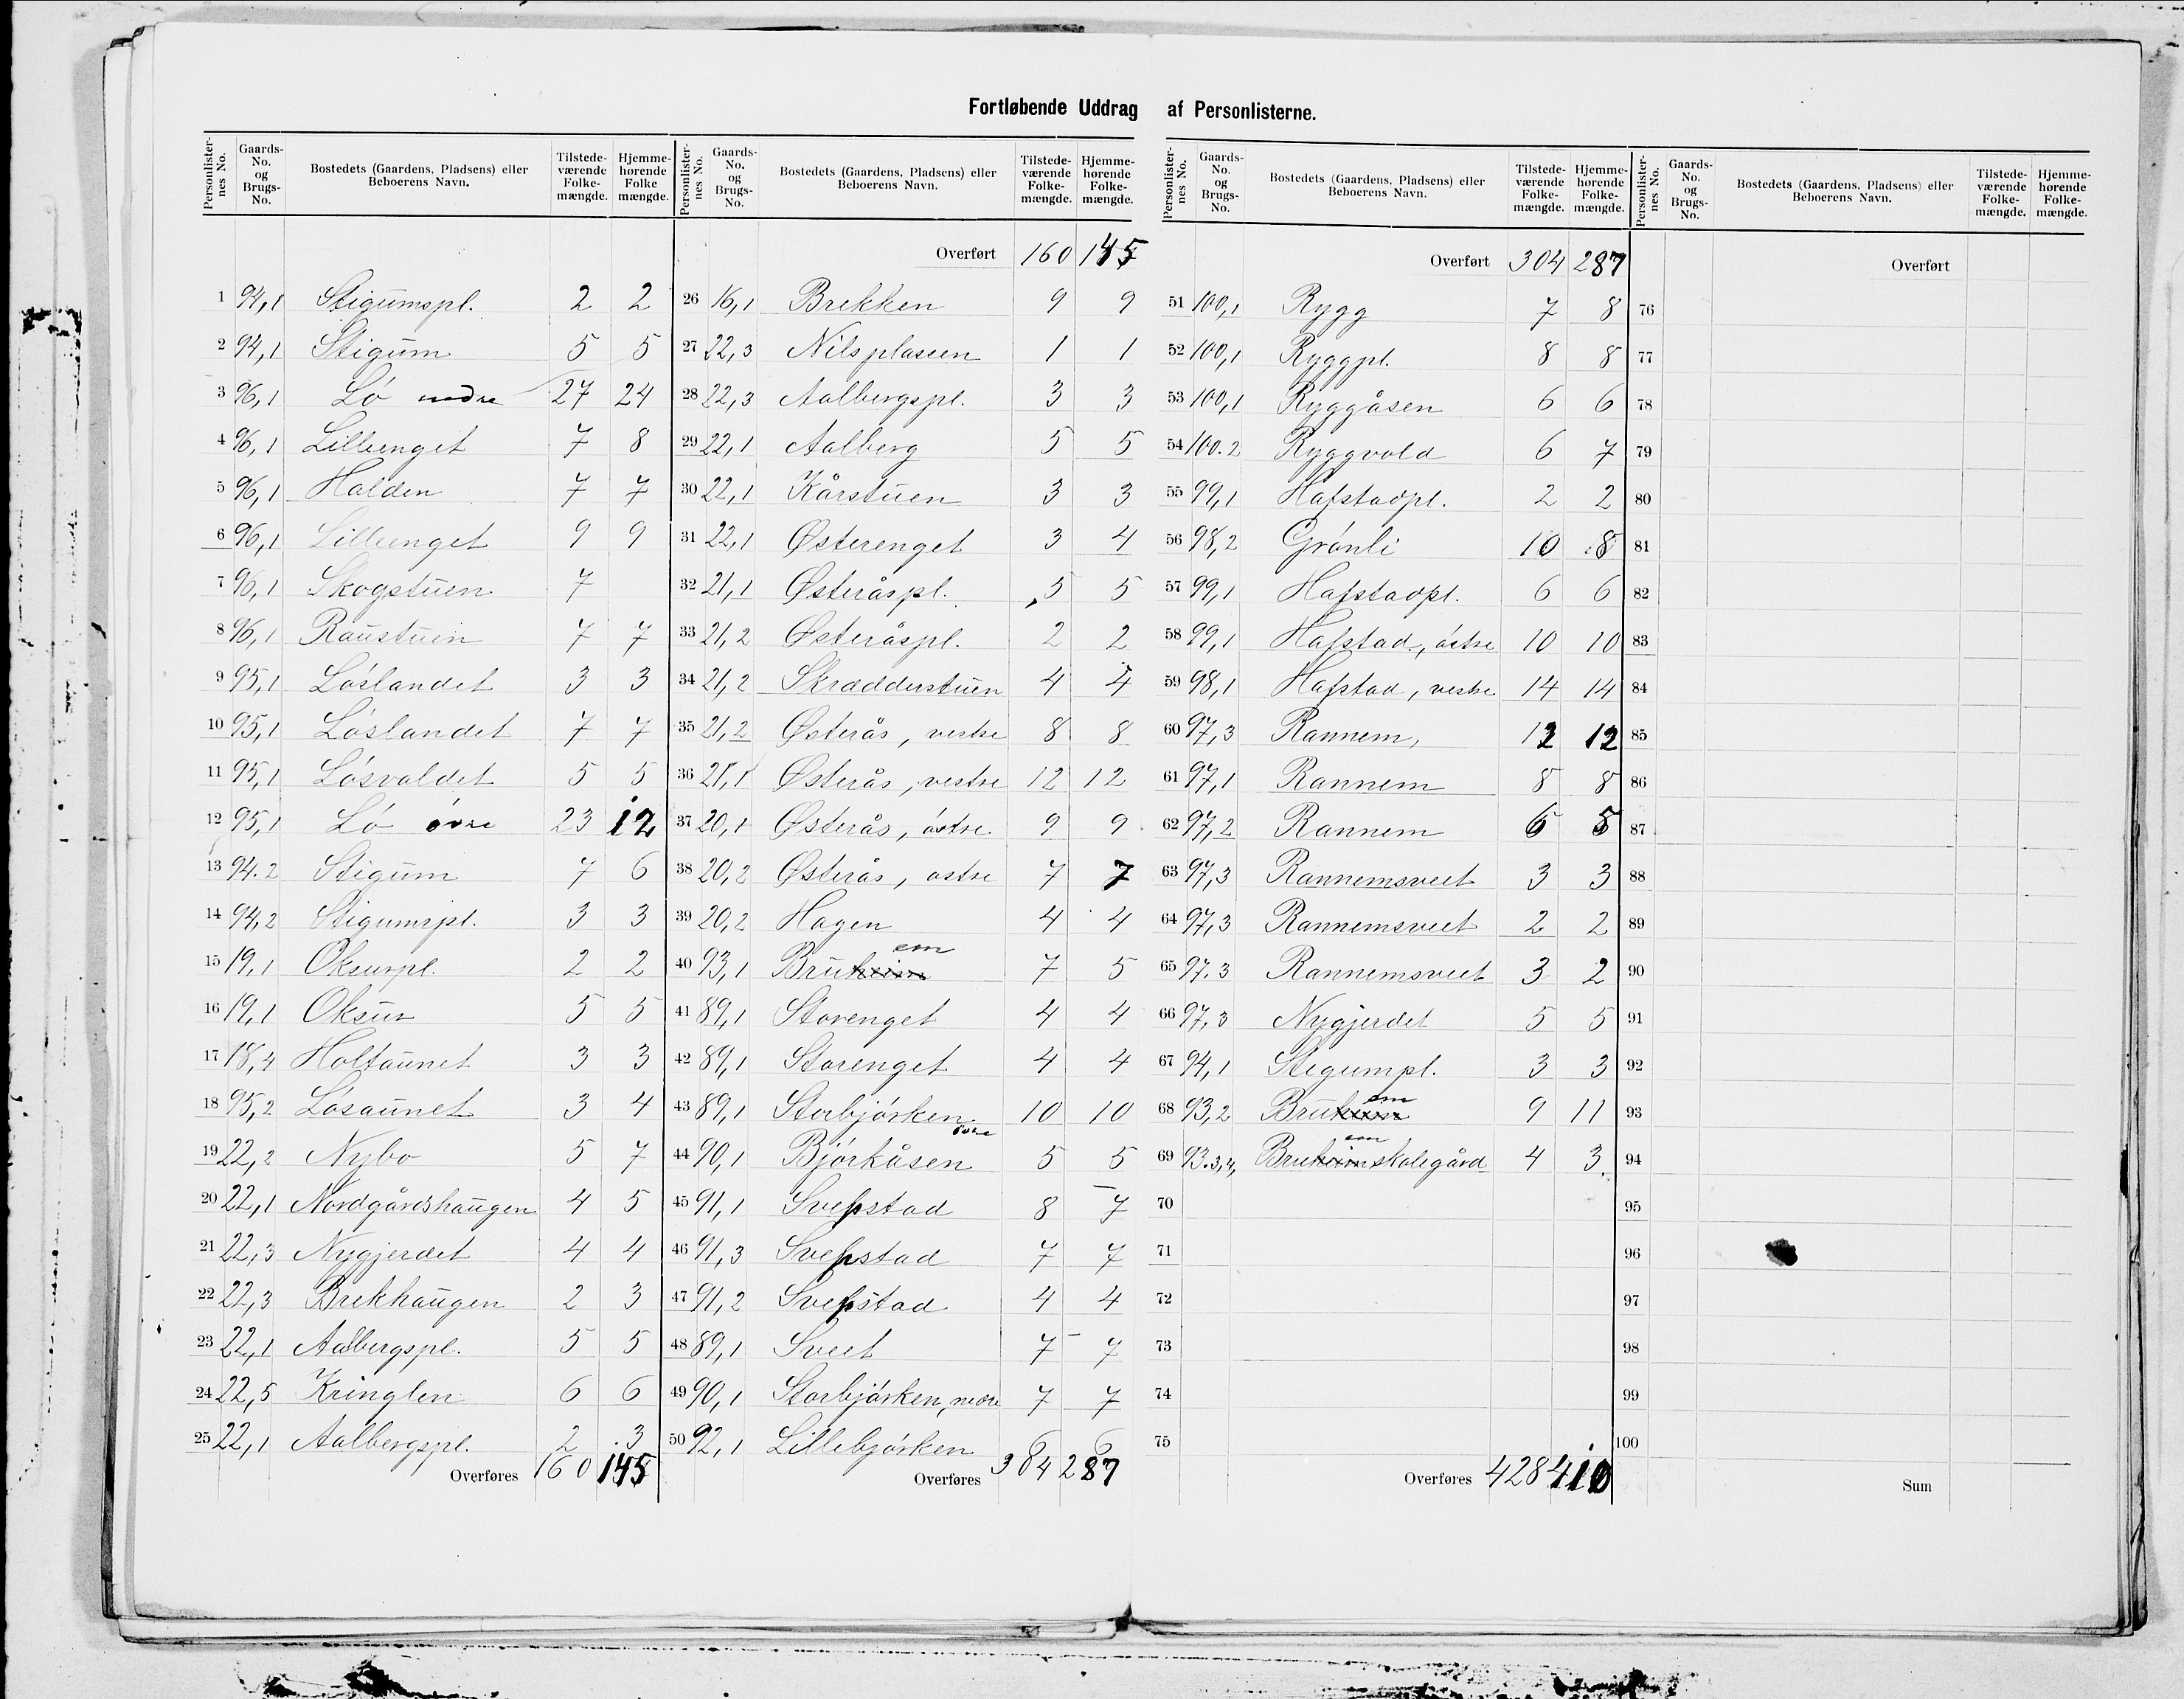 Fortløbende Uddrag af Personlisterne.
Personlister-nes No. Gaards-No. og Brugs-No. Bostedets (Gaardens, Pladsens) eller Beboerens Navn. Tilstede-værende Folke-mængde. Hjemme-hørende Folke mængde.
1 94,1 Stigumspl. 2 2
2 94,1 Stigum 5 5
3 96,1 Lö nedre 27 24
4 96,1 Lillenget 7 8
5 96,1 Halden 7 7
6 96,1 Lillenget 9 9
7 96,1 Skogstuen 7
8 96,1 Raustuen 7 7
9 95,1 Löslandet 3 3
10 95,1 Löslandet 7 7
11 95,1 Lösvaldet 5 5
12 95,1 Lö övre 23 12
13 94.2 Stigum 7 6
14 94,2 Stigumspl. 3 3
15 19,1 Oksurpl. 2 2
16 19,1 Oksur 5 5
17 18,4 Holtaunet 3 3
18 95,2 Lösaunet 3 4
19 22,2 Nybo 5 7
20 22,1 Nordgårdshaugen 4 5
21 22,3 Nygjerdet 4 4
22 22,3 Brekhaugen 2 3
23 22,1 Aalbergspl. 5 5
24 22,5 Kringlen 6 6
25 22,1 Aalbergspl. 2 3
Overføres 160 145
Personlister-nes No. Gaards-No. og Brugs-No. Bostedets (Gaardens, Pladsens) eller Beboerens Navn. Tilstede-værende Folke-mængde. Hjemme-hørende Folke-mængde.
Overført 160 145
26 16,1 Brekken 9 9
27 22,3 Nilsplassen 1 1
28 22,3 Aalbergspl. 3 3
29 22,1 Aalberg 5 5
30 22,1 Kårstuen 3 3
31 22,1 Østerenget 3 4
32 21,1 Østeråspl. 5 5
33 21,2 Østeråspl. 2 2
34 21,2 Skrædderstuen 4 4
35 21,2 Østerås, vestre 8 8
36 21,1 Østerås, vestre 12 12
37 20,1 Østerås, östre 9 9
38 20,2 Østerås, ostre 7 7
39 20,2 Hagen 4 4
40 93,1 Bruheim em 7 5
41 89,1 Storenget 4 4
42 89,1 Storenget 4 4
43 89,1 Storbjörken övre 10 10
44 90,1 Björkåsen 5 5
45 91,1 Svepstad 8 7
46 91,3 Svepstad 7 7
47 91,2 Svepstad 4 4
48 89,1 Sveet 7 7
49 90,1 Storbjörken, nedre 7 7
50 92,1 Lillebjörken 6 6
Overføres 304 287
Personlister-nes No. Gaards-No. og Brugs-No. Bostedets (Gaardens, Pladsens) eller Beboerens Navn. Tilstede-værende Folke-mængde. Hjemme-hørende Folke-mængde.
Overført 304 287
51 100,1 Rygg 7 8
52 100,1 Ryggpl. 8 8
53 100,1 Ryggåsen 6 6
54 100.2 Ryggvold 6 7
55 99,1 Hafstadpl. 2 2
56 98,2 Grönli 10 8
57 99,1 Hafstadpl. 6 6
58 99,1 Hafstad, östre 10 10
59 98,1 Hafstad, vestre 14 14
60 97,3 Rannem, 12 12
61 97,1 Rannem 8 8
62 97,2 Rannem 6 5
63 97,3 Rannemsveet 3 3
64 97,3 Rannemsveet 2 2
65 97.3 Rannemsveet 3 2
66 97,3 Nygjerdet 5 5
67 94,1 Stegumpl. 3 3
68 93,2 Bruheim em 9 11
69 93.3,4, Bruheimskolegård em 4 3
70
71
72
73
74
75
Overføres 428 410
Personlister-nes No. Gaards-No. og Brugs-No. Bostedets (Gaardens, Pladsens) eller Beboerens Navn. Tilstede-værende Folke-mængde. Hjemme-hørende Folke-mængde.
Overført
76
77
78
79
80
81
82
83
84
85
86
87
88
89
90
91
92
93
94
95
96
97
98
99
100
Sum